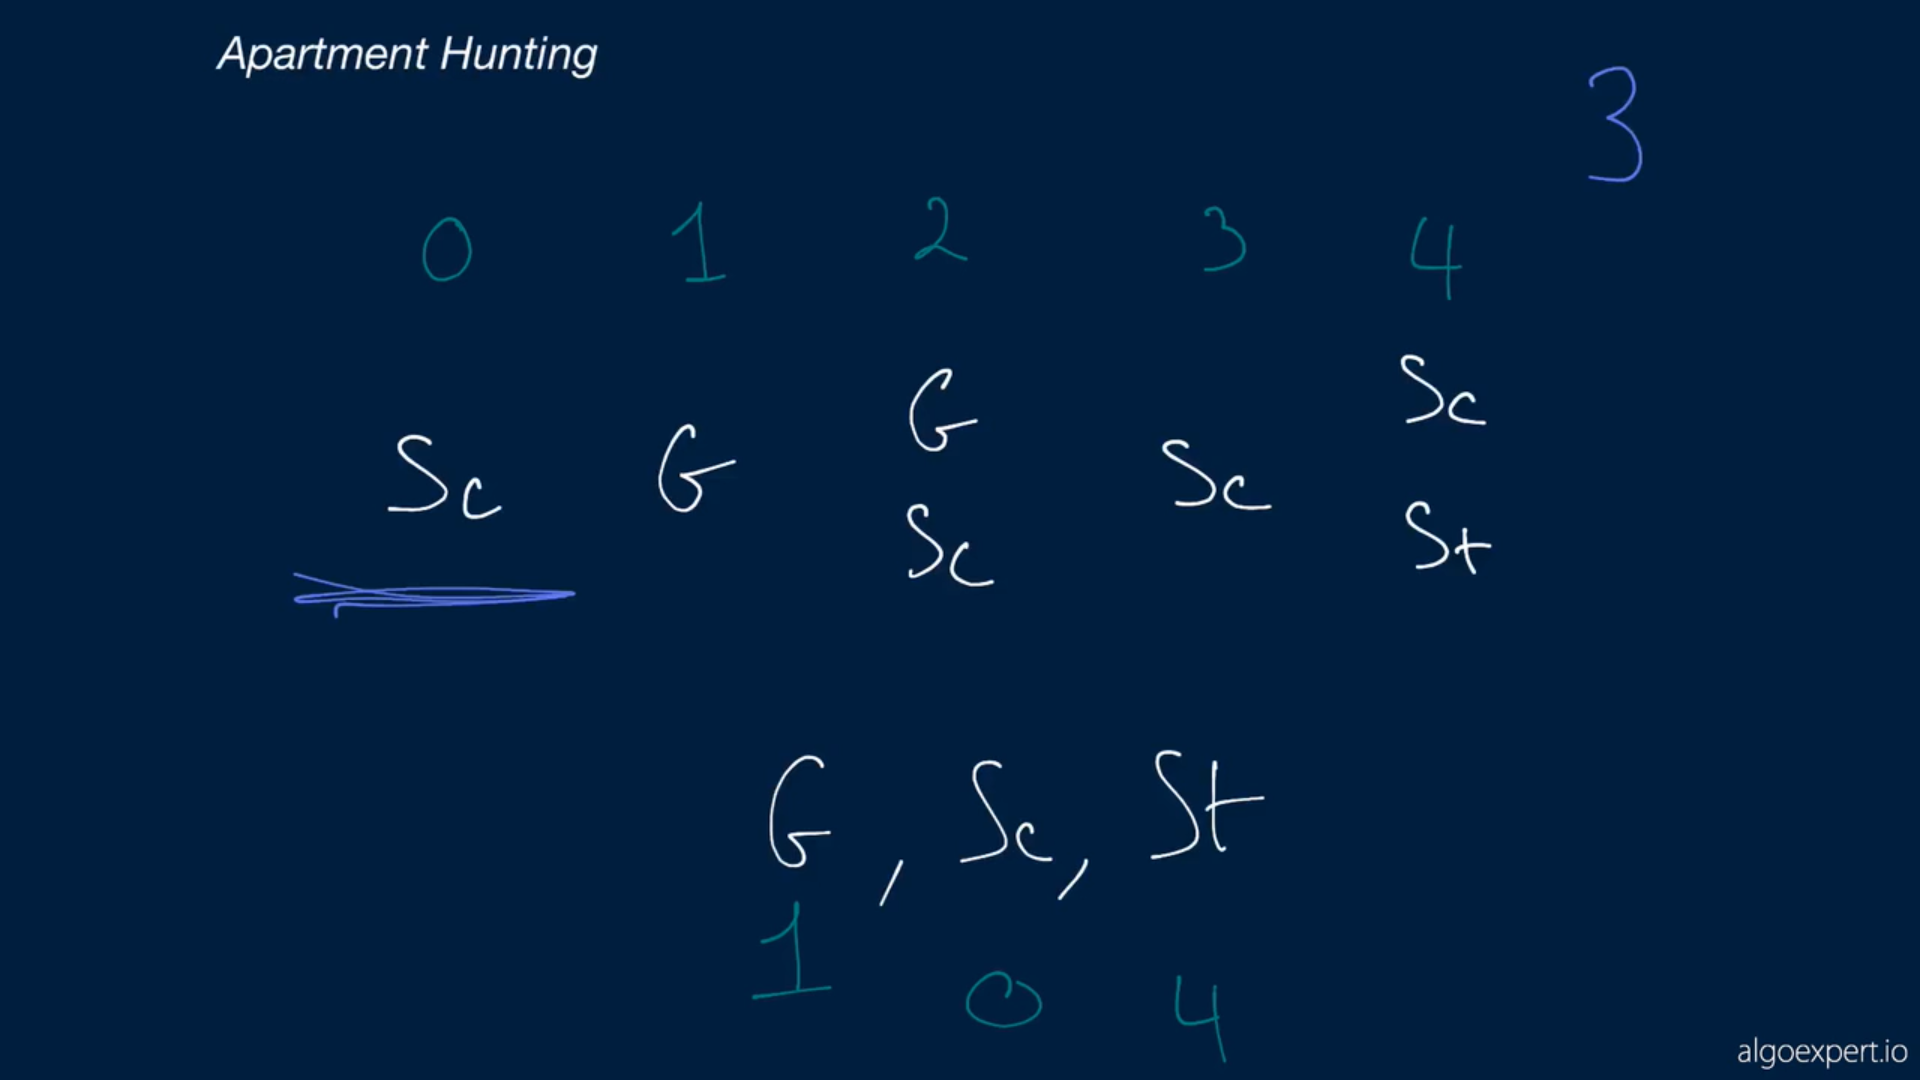 Apartment Hunting
3
0 1 2 3 4
G Sc
Sc G Sc
Sc St
G, Sc, St
1 0 4
algoexpert.io